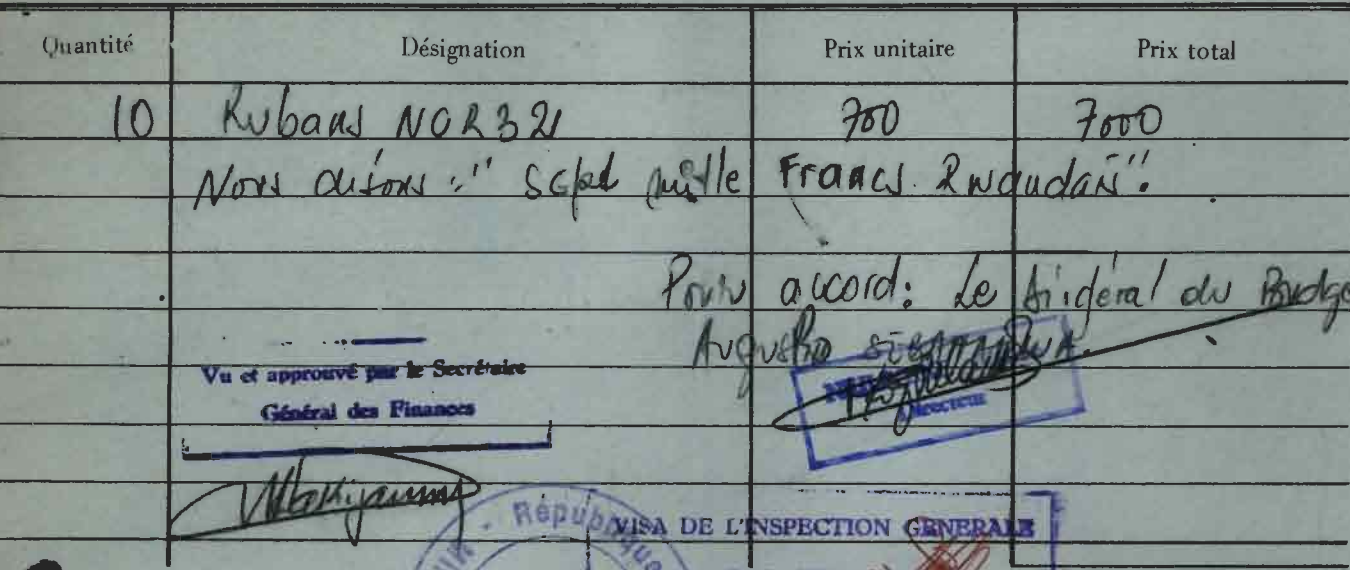 Quantité Désignation Prix unitaire Prix total
10 Rubans NOR321 700 7000
Nous disons: " Sept mille Francs Rwandais".
Pour accord: Le du Budge
Vu et approuvé par le Secrétaire
Général des Finances
Directeur
République
VISA DE L'INSPECTION GENERALE